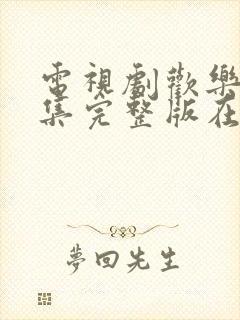 電視劇歡樂
集完整版在
夢回先生